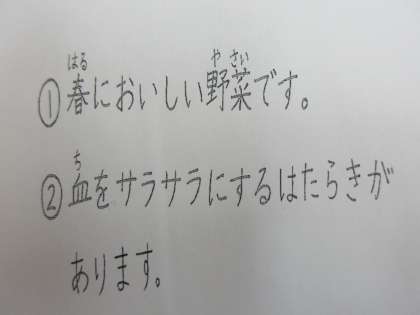 はる や さい
①春においしい野菜です。
ち
②血をサラサラにするはたらきが
あります。